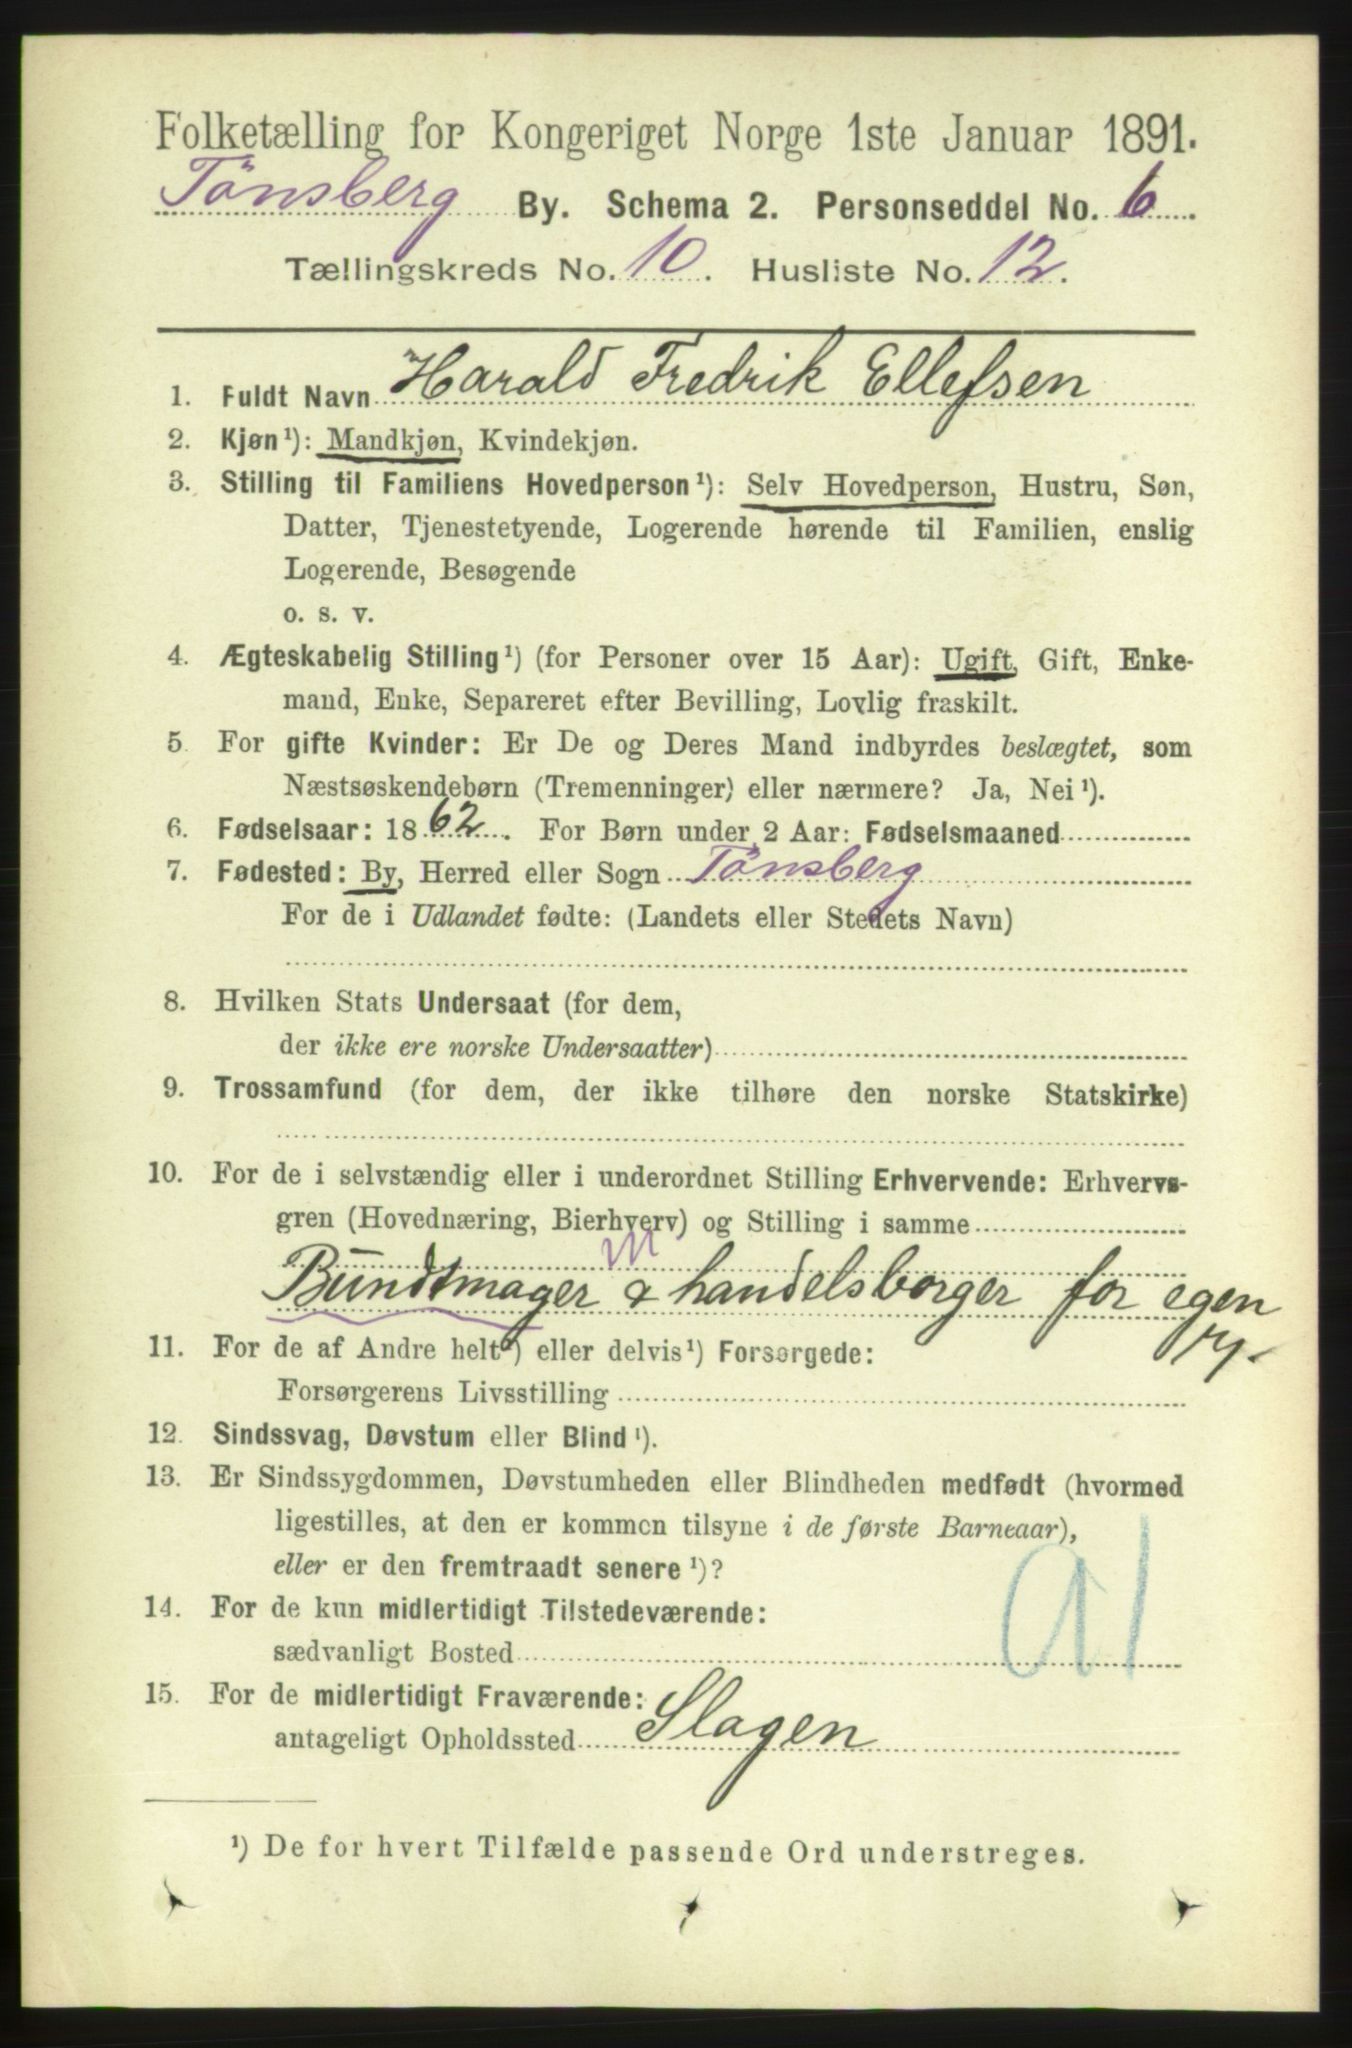 Folketælling for Kongeriget Norge 1ste Januar 1891.
Tönsberg By. Schema 2. Personseddel No. 6.
Tællingskreds No. 10. Husliste No. 12.
1. Fuldt Navn Harald Fredrik Ellefsen
2. Kjøn¹): Mandkjøn, Kvindekjøn.
3. Stilling til Familiens Hovedperson¹): Selv Hovedperson, Hustru, Søn,
Datter, Tjenestetyende, Logerende hørende til Familien, enslig
Logerende, Besøgende
o. s. v.
4. Ægteskabelig Stilling¹) (for Personer over 15 Aar): Ugift, Gift, Enke-
mand, Enke, Separeret efter Bevilling, Lovlig fraskilt.
5. For gifte Kvinder: Er De og Deres Mand indbyrdes beslægtet, som
Næstsøskendebørn (Tremenninger) eller nærmere? Ja, Nei¹).
6. Fødselsaar: 1862. For Børn under 2 Aar: Fødselsmaaned
7. Fødested: By, Herred eller Sogn Tönsberg
For de i Udlandet fødte: (Landets eller Stedets Navn)
8. Hvilken Stats Undersaat (for dem,
der ikke ere norske Undersaatter)
9. Trossamfund (for dem, der ikke tilhøre den norske Statskirke)
10. For de i selvstændig eller i underordnet Stilling Erhvervende: Erhvervs-
gren (Hovednæring, Bierhverv) og Stilling i samme
m
Bundtmager & handelsborger for egen
11. For de af Andre helt¹) eller delvis¹) Forsørgede:
Forsørgerens Livsstilling
12. Sindssvag, Døvstum eller Blind¹).
13. Er Sindssygdommen, Døvstumheden eller Blindheden medfødt (hvormed
ligestilles, at den er kommen tilsyne i de første Barneaar),
eller er den fremtraadt senere¹)?
14. For de kun midlertidigt Tilstedeværende:
sædvanligt Bosted
15. For de midlertidigt Fraværende:
antageligt Opholdssted Slagen
¹) De for hvert Tilfælde passende Ord understreges.